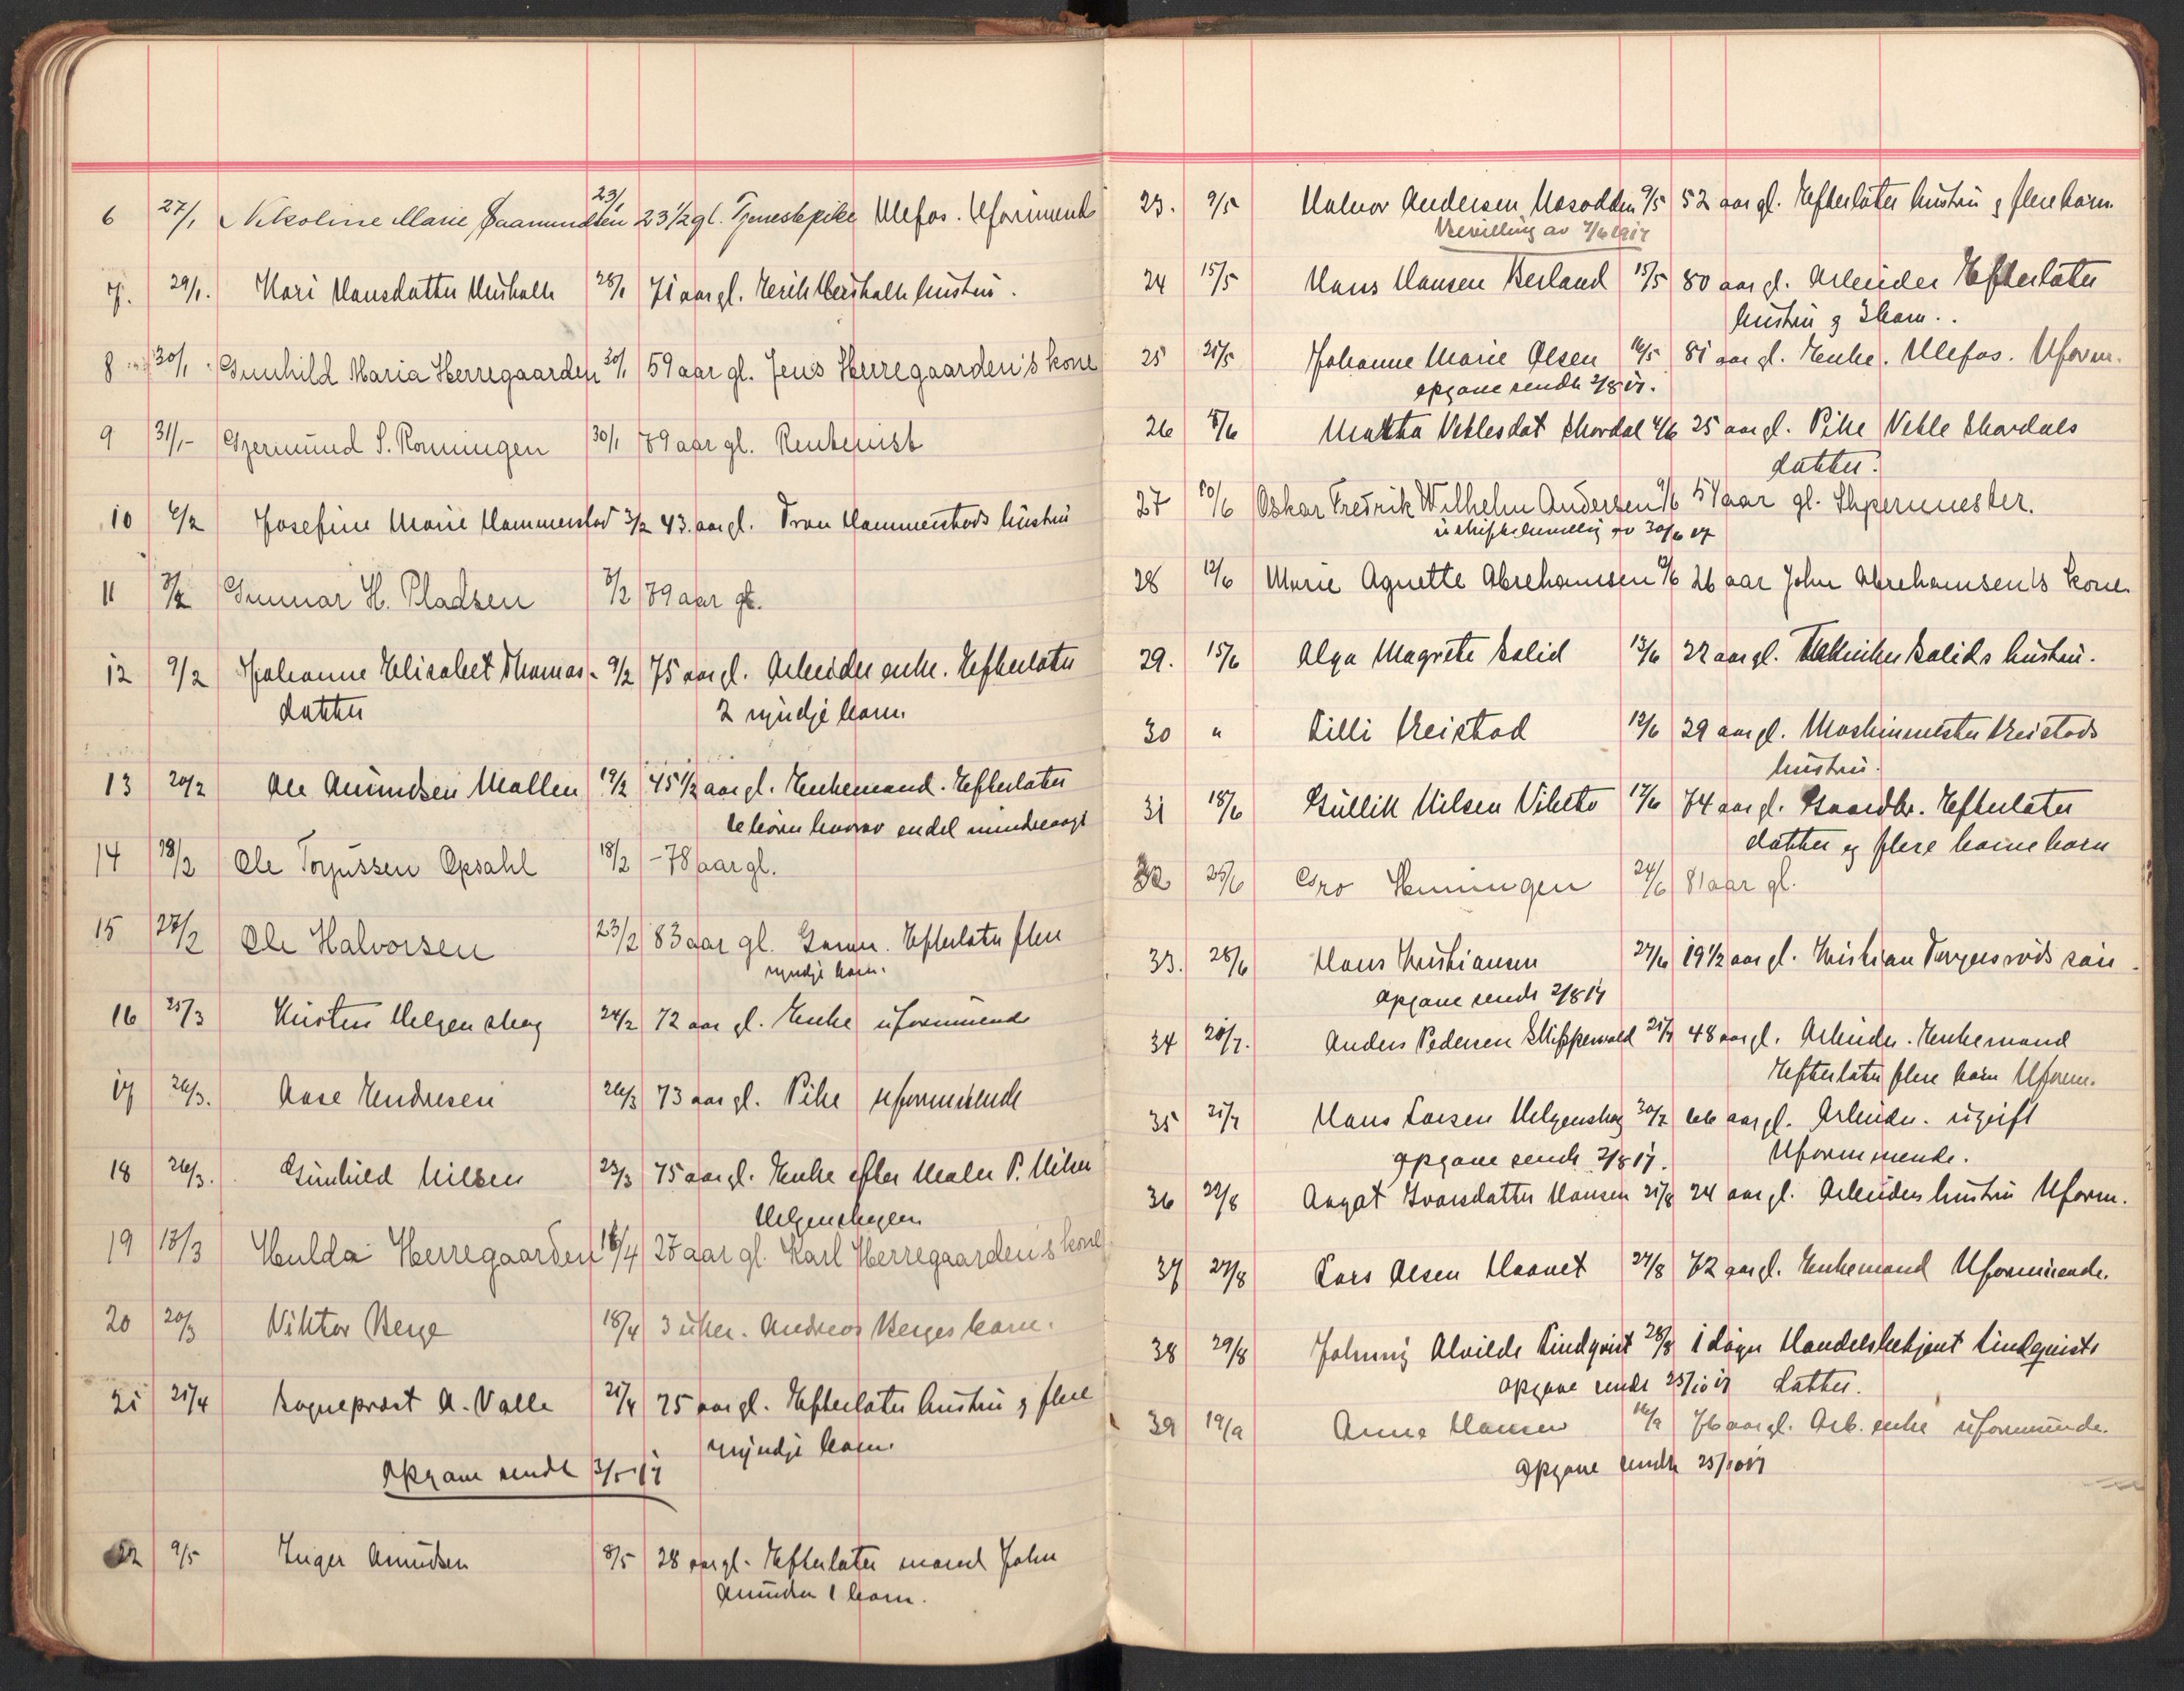 6 27/1 Nikoline Marie Saamundsen 23/1 23 1/2 gl. Tjenestepike Ulefos. Uformuende
7. 29/1. Kari Hansdatter 28/1 71 aar gl. hustru.
8 30/1 Gunhild Maria Herregaarden 30/1 59 aar gl. Jens Herregaarden's kone
9 31/1- Gjermund S. Ronningen 30/1 79 aar gl. Rentenist
10 6/2 Josefine Marie Hammerstad 3/2 43. aar gl. Tron Hammerstads hustru
11 Gunnar H. Pladsen 79 aar gl.
12 9/2 Johanne Elisabet Thomas- 9/2 75 aar gl. Arbeider enke. Efterlater
datter 2 myndje barn.
13 20/2 Ole Amundsen Mallen 19/2 45 1/2 aar gl. Enkemand. Efterlater
barn hvorav endel mindreaarige
14 18/2 Ole Torjussen Opsahl 18/2 -78 aar gl.
15 27/2 Ole Halvorsen 23/2 83 aar gl. Efterlater flere
myndje barn.
16 25/3 Kirsten Helgenshag 24/2 72 aar gl. Enke uformuende
17 26/3. Aase Endresen 26/3 73 aar gl. Pike uformuende
18 26/3. Gunhild Nilsen 23/3 75 aar gl. Enke efter Maler P. Nilsen
Helgenshagen
19 18/3 Hulda Herregaarden 16/4 27 aar gl. Karl Herregaarden's kone
20 20/3 Viktor Berge 18/4 3 uker. Andreas Berges barn.
21 21/4 Sogneprest A. Valle 21/4 75 aar gl. Efterlater hustru og flere
myndje barn.
Opgave sendt 3/5 17
22 9/5 Inger Amundsen 8/5 28 aar gl. Efterlater mand John
Amundsen 1 barn.
23. 9/5 Halvor Andersen Næsodden 9/5 52 aar gl. Efterlater hustru og flere barn.
Bevilling av 7/6 1917
24 15/5 Hans Hansen Berland 15/5 80 aar gl. Arbeider Efterlater
hustru og 3 barn..
25 21/5 Johanne Marie Olsen 16/5 81 aar gl. Enke. Ulefos. Uform.
opgave sendt 2/8 17.
26 8/6 Martha Vetlesdat Skardal 4/6 25 aar gl. Pike Vetle Skardals
datter.
27 10/6 Oskar Fredrik Wilhelm Andersen 9/6 51 aar gl. Støpermester.
uskiftebevilling av 30/6 17
28 12/6 Marie Agnette Abrehamsen 9/6 26 aar John Abrehamsen's kone.
29. 15/6 Olga Magrete Solid 13/6 22 aar gl. Tekniker Solids hustru.
30 " Lilli Kreistad 12/6 29 aar gl. Maskinmester Kreistads
hustru.
31 18/6 Gullik Nilsen Vibeto 17/6 74 aar gl. Gaardbr. Efterlater
datter og flere barnebarn
32 25/6 Gro Henningen 24/6 81 aar gl.
33. 28/6 Hans Kristiansen 27/6 19 1/2 aar gl. Kristian søn.
Opgave sendt 2/8 17
34 28/7. Anders Pedersen Skippervold 21/7 48 aar gl. Arbeider. Enkemand
Efterlater flere barn Uform.
35 31/7 Hans Larsen Helgenshag 30/7 66 aar gl. Arbeider. ugift
opgave sendt 2/8 17. Uformuende.
36 22/8 Aagot Ivarsdatter Hansen 21/8 24 aar gl. Arbeiders hustru Uform.
37 27/8 Lars Olsen Haavet 24/8 72 aar gl. Enkemand Uformuende.
38 29/8 Johnny Alvilde Lindqvist 28/8 1 døgn Handelsbetjent Lindqvists
opgave sendt 25/10 17 datter.
39 19/9 Anne Hansen 16/9 76 aar gl. Arb. enke uformuende.
opgave sendt 25/10 17